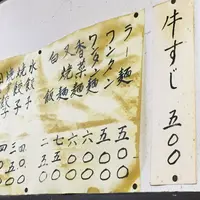 牛すじ 五〇〇
ラー麺 五〇〇
ワンタン 五〇〇
ワンタン麺 六〇〇
香菜麺 六〇〇
叉焼麺 七〇〇
白飯 二〇〇
水餃子
焼餃子